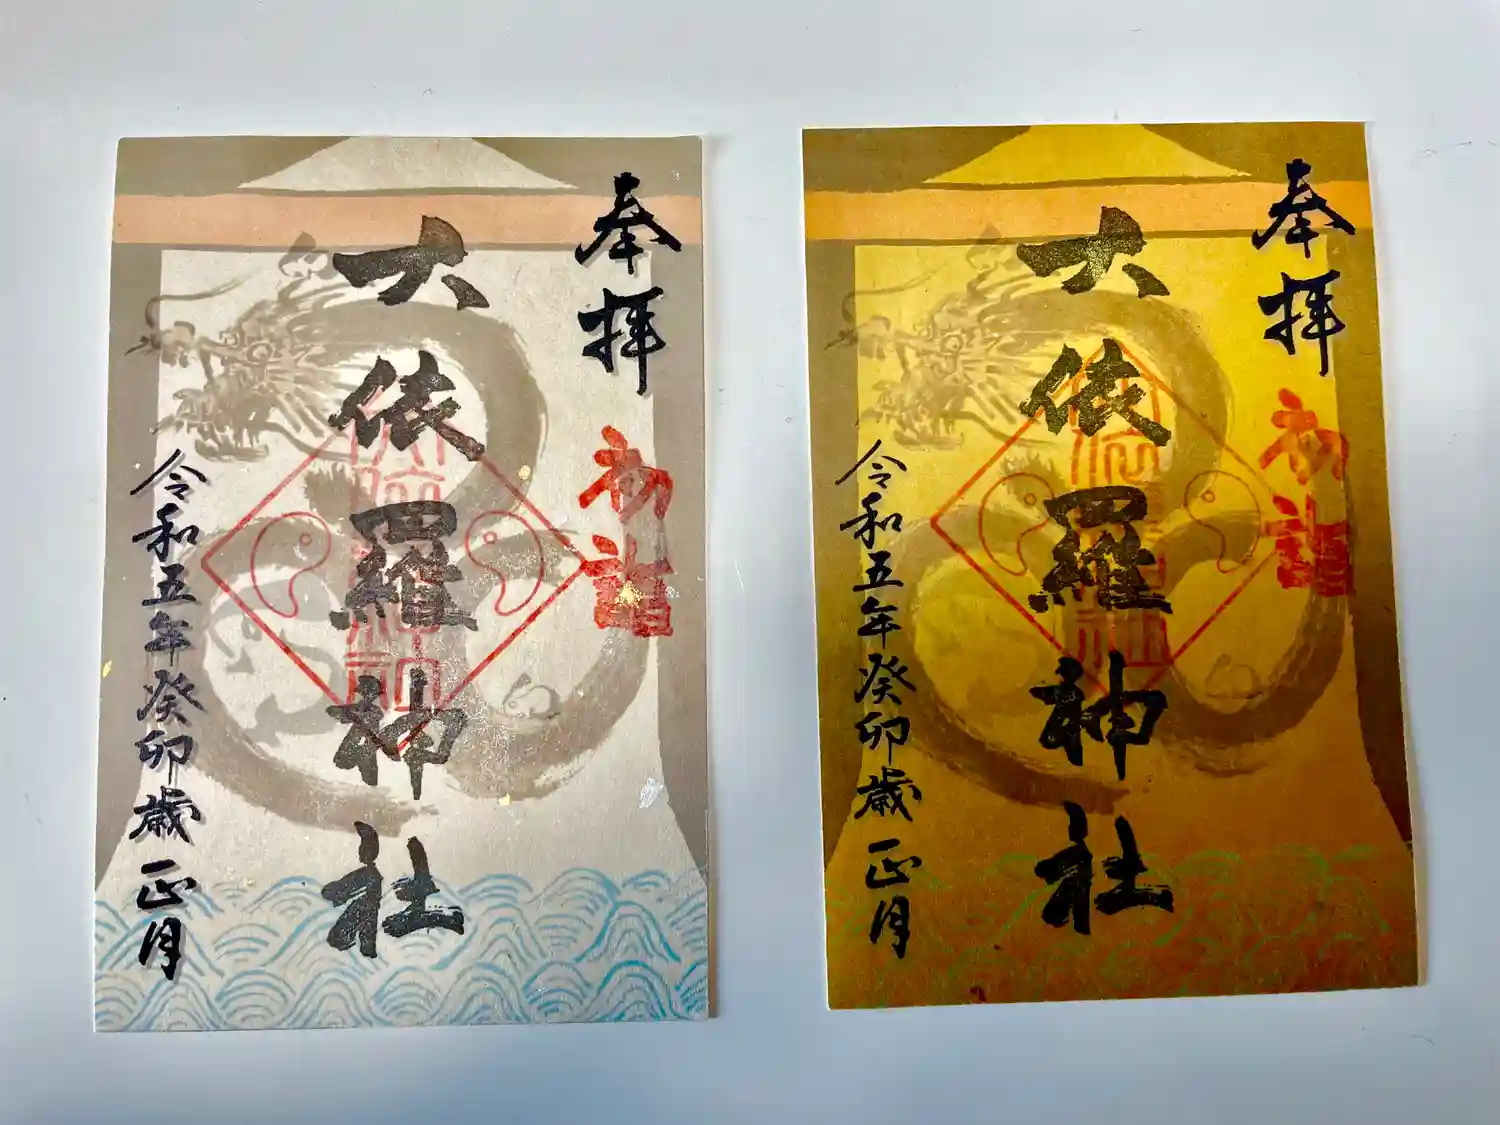 奉拝
初詣
大依羅神社
令和五年癸卯歳正月
奉拝
初詣
大依羅神社
令和五年癸卯歳正月